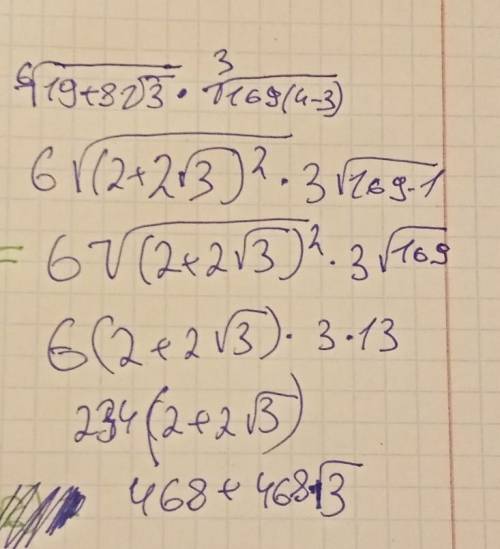 ⁶√(19+8√3) · ³√(169(4-3))
6√(2+2√3)² · 3√(169·1)
= 6√(2+2√3)² · 3√169
6(2+2√3) · 3·13
234(2+2√3)
468+468√3